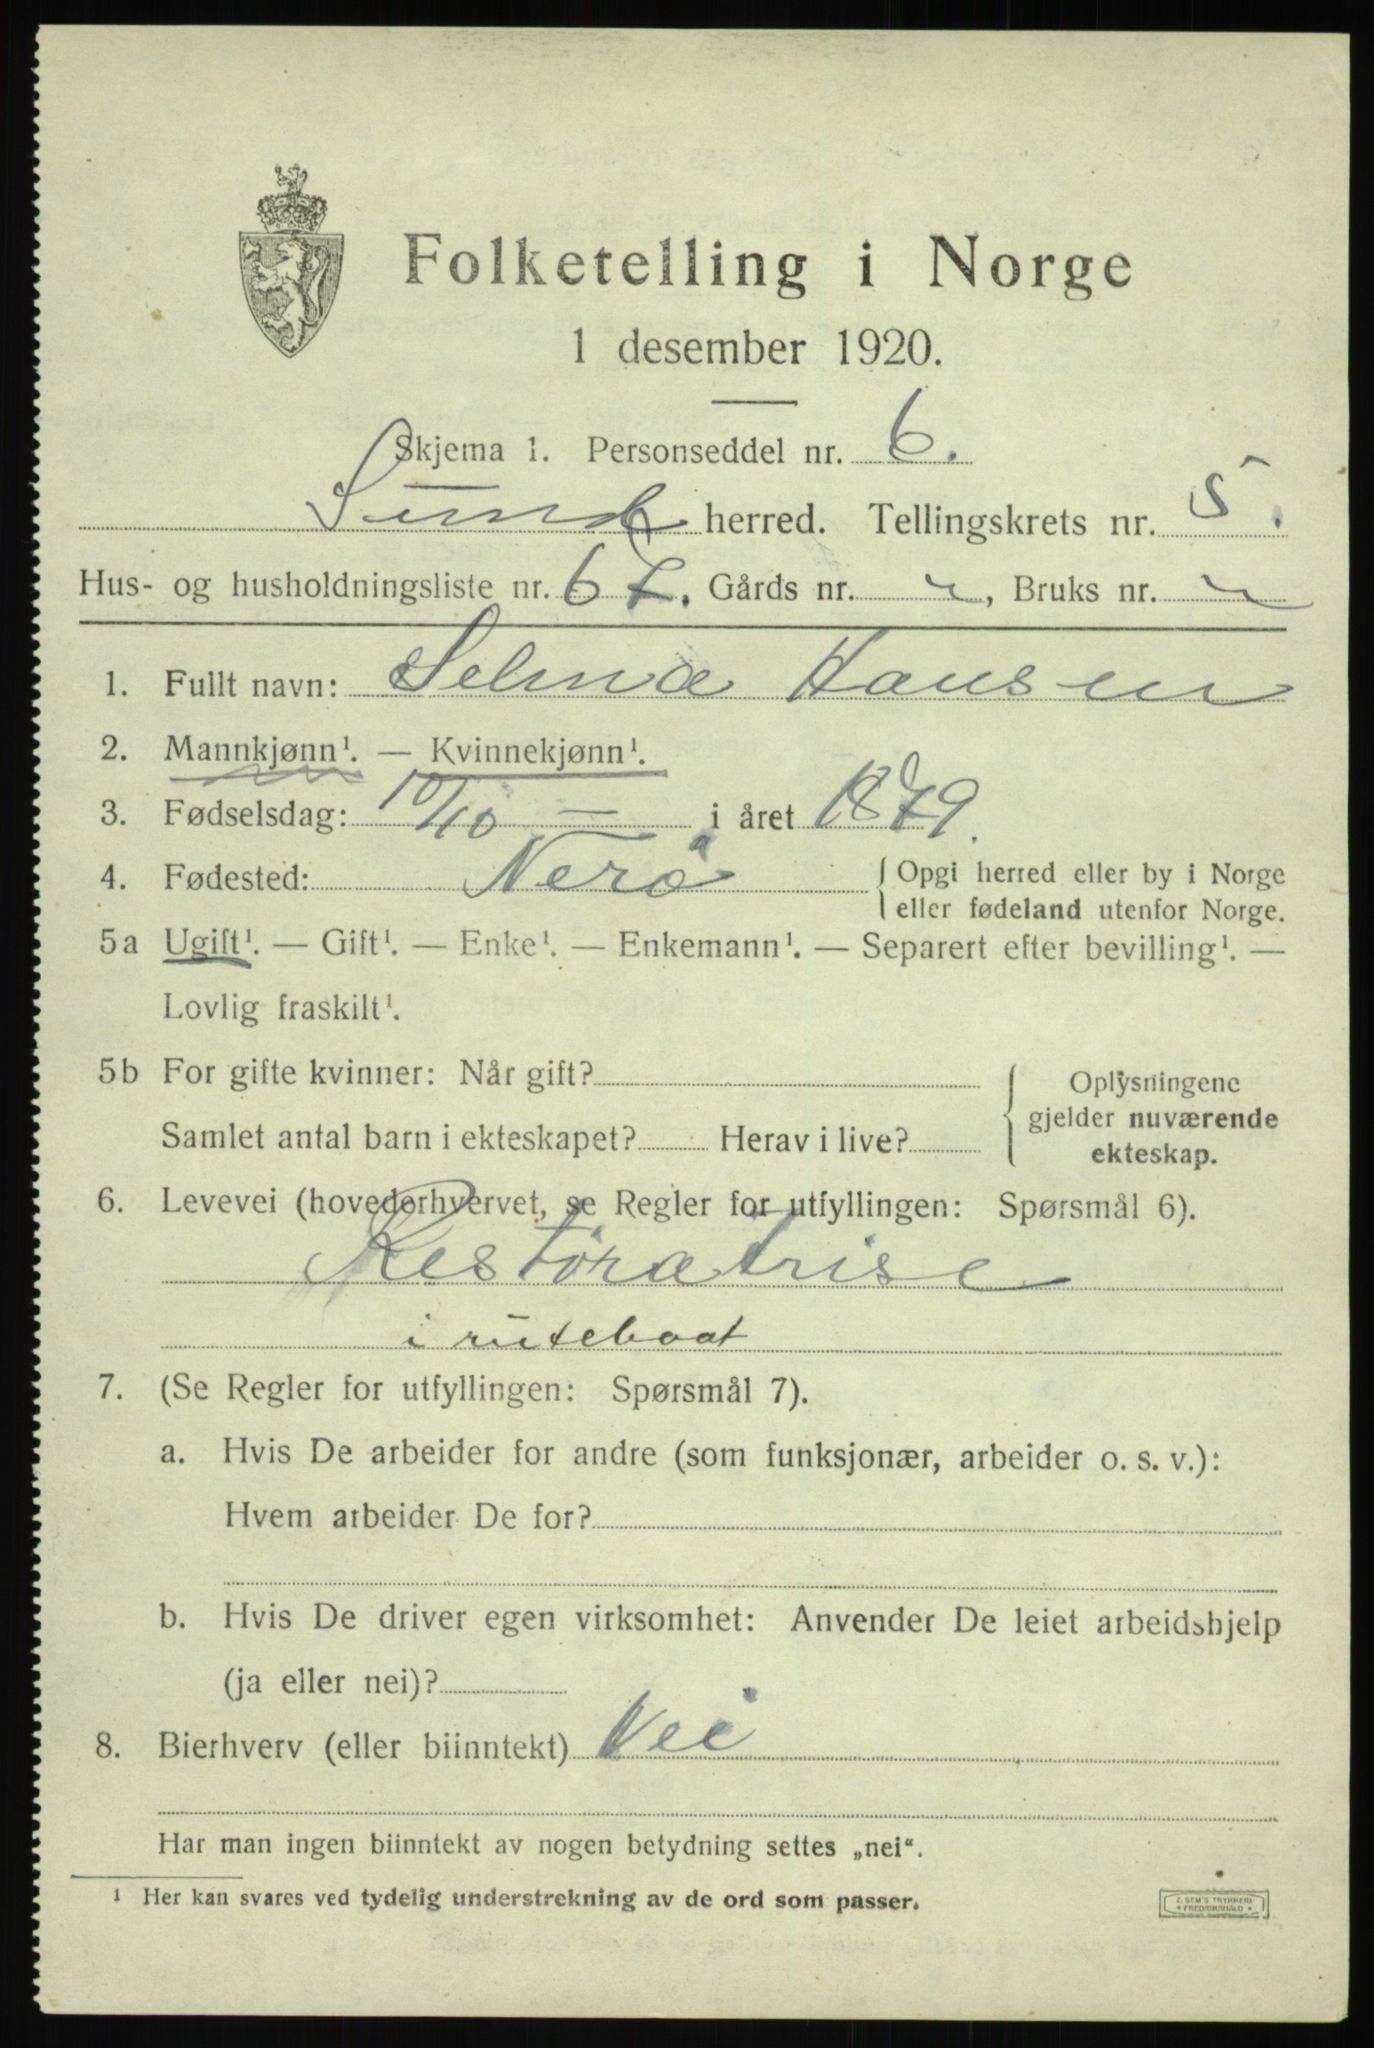 Folketelling i Norge
1 desember 1920.
Skjema 1. Personseddel nr. 6.
Sund herred. Tellingskrets nr. 5.
Hus- og husholdningsliste nr. 67. Gårds nr. „, Bruks nr. „
1. Fullt navn: Selma Hansen
2. Mannkjønn¹. — Kvinnekjønn¹.
3. Fødselsdag: 10/10 — i året 1879.
4. Fødested: Nerö {Opgi herred eller by i Norge
eller fødeland utenfor Norge.
5a Ugift¹. — Gift¹. — Enke¹. — Enkemann¹. — Separert efter bevilling¹. —
Lovlig fraskilt¹.
5b For gifte kvinner: Når gift? {Oplysningene
gjelder nuværende
Samlet antal barn i ekteskapet? Herav i live? ekteskap.
6. Levevei (hovederhvervet, se Regler for utfyllingen: Spørsmål 6).
Restoratrise
i ruteboat
7. (Se Regler for utfyllingen: Spørsmål 7).
a. Hvis De arbeider for andre (som funksjonær, arbeider o. s. v.):
Hvem arbeider De for?
b. Hvis De driver egen virksomhet: Anvender De leiet arbeidshjelp
(ja eller nei)?
8. Bierhverv (eller biinntekt) Nei
Har man ingen biinntekt av nogen betydning settes „nei“.
¹ Her kan svares ved tydelig understrekning av de ord som passer.
Z. SEM'S TRYKKERI
• FREDRIKSHALD •